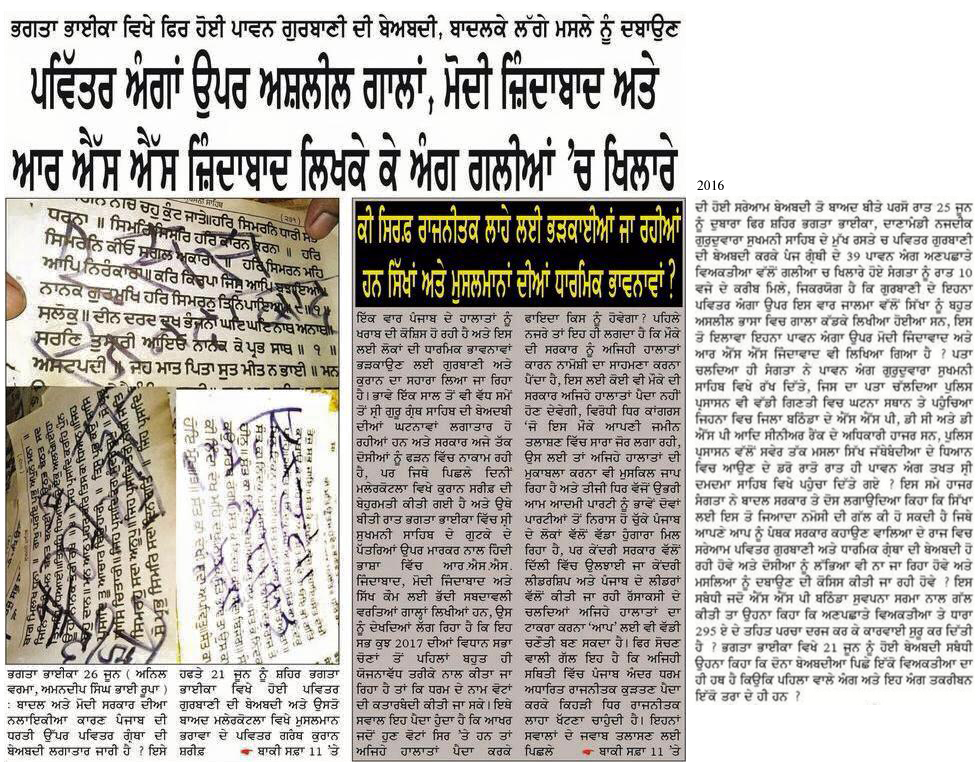 ਭਗਤਾ ਭਾਈਕਾ ਵਿਖੇ ਫਿਰ ਹੋਈ ਪਾਵਨ ਗੁਰਬਾਣੀ ਦੀ ਬੇਅਬਦੀ, ਬਾਦਲਕੇ ਲੱਗੇ ਮਸਲੇ ਨੂੰ ਦਬਾਉਣ
ਪਵਿੱਤਰ ਅੰਗਾਂ ਉਪਰ ਅਸ਼ਲੀਲ ਗਾਲਾਂ, ਮੋਦੀ ਜ਼ਿੰਦਾਬਾਦ ਅਤੇ
ਆਰ ਐੱਸ ਐੱਸ ਜ਼ਿੰਦਾਬਾਦ ਲਿਖਕੇ ਕੇ ਅੰਗ ਗਲੀਆਂ 'ਚ ਖਿਲਾਰੇ
ਧਰਨਾ ॥ ਸਿਮਰਿ ਸਿਮਰਿ ਹਰਿ ਕਾਰਨ ਕਰਨਾ ॥ ਹਰਿ
ਸਿਮਰਨਿ ਕੀਓ ਸਗਲ ਅਕਾਰਾ ॥ ਹਰਿ ਸਿਮਰਨ ਮਹਿ
ਆਪਿ ਨਿਰੰਕਾਰਾ ॥ ਕਰਿ ਕਿਰਪਾ ਜਿਸੁ ਆਪਿ ਬੁਝਾਇਆ
ਨਾਨਕ ਗੁਰਮੁਖਿ ਹਰਿ ਸਿਮਰਨੁ ਤਿਨਿ ਪਾਇਆ
ਸਲੋਕੁ ॥ ਦੀਨ ਦਰਦ ਦੁਖ ਭੰਜਨਾ ਘਟਿ ਘਟਿ ਨਾਥ ਅਨਾਥ
ਸਰਣਿ ਤੁਮ੍ਾਰੀ ਆਇਓ ਨਾਨਕ ਕੇ ਪ੍ਰਭ ਸਾਥ ॥ ੧ ॥
ਅਸਟਪਦੀ ॥ ਜਹ ਮਾਤ ਪਿਤਾ ਸੁਤ ਮੀਤ ਨ ਭਾਈ ॥ ਮਨ
ਭਗਤਾ ਭਾਈਕਾ 26 ਜੂਨ ( ਅਨਿਲ
ਵਰਮਾ, ਅਮਨਦੀਪ ਸਿੰਘ ਭਾਈ ਰੂਪਾ )
: ਬਾਦਲ ਅਤੇ ਮੋਦੀ ਸਰਕਾਰ ਦੀਆ
ਨਲਾਇਕੀਆ ਕਾਰਣ ਪੰਜਾਬ ਦੀ
ਧਰਤੀ ਉੱਪਰ ਪਵਿਤਰ ਗ੍ਰੰਥਾ ਦੀ
ਬੇਅਬਦੀ ਲਗਾਤਾਰ ਜਾਰੀ ਹੈ ? ਇਸੇ
ਹਫਤੇ 21 ਜੂਨ ਨੂੰ ਸ਼ਹਿਰ ਭਗਤਾ
ਭਾਈਕਾ ਵਿਖੇ ਹੋਈ ਪਵਿਤਰ
ਗੁਰਬਾਣੀ ਦੀ ਬੇਅਬਦੀ ਅਤੇ ਉਸਤੋ
ਬਾਅਦ ਮਲੇਰਕੋਟਲਾ ਵਿਖੇ ਮੁਸਲਮਾਨ
ਭਰਾਵਾ ਦੇ ਪਵਿਤਰ ਗਰੰਥ ਕੁਰਾਨ
ਸ਼ਰੀਫ਼ ਬਾਕੀ ਸਫ਼ਾ 11 'ਤੇ
ਕੀ ਸਿਰਫ਼ ਰਾਜਨੀਤਕ ਲਾਹੇ ਲਈ ਭੜਕਾਈਆਂ ਜਾ ਰਹੀਆਂ
ਹਨ ਸਿੱਖਾਂ ਅਤੇ ਮੁਸਲਮਾਨਾਂ ਦੀਆਂ ਧਾਰਮਿਕ ਭਾਵਨਾਵਾਂ ?
ਇੱਕ ਵਾਰ ਪੰਜਾਬ ਦੇ ਹਾਲਾਤਾਂ ਨੂੰ
ਖਰਾਬ ਦੀ ਕੋਸ਼ਿਸ ਹੋ ਰਹੀ ਹੈ ਅਤੇ ਇਸ
ਲਈ ਲੋਕਾਂ ਦੀ ਧਾਰਮਿਕ ਭਾਵਨਾਵਾਂ
ਭੜਕਾਉਣ ਲਈ ਗੁਰਬਾਣੀ ਅਤੇ
ਕੁਰਾਨ ਦਾ ਸਹਾਰਾ ਲਿਆ ਜਾ ਰਿਹਾ
ਹੈ। ਭਾਵੇਂ ਇੱਕ ਸਾਲ ਤੋਂ ਵੀ ਵੱਧ ਸਮੇਂ
ਤੋਂ ਸ੍ਰੀ ਗੁਰੂ ਗ੍ਰੰਥ ਸਾਹਿਬ ਦੇ ਬੇਅਦਬੀ
ਦੀਆਂ ਘਟਨਾਵਾਂ ਲਗਾਤਾਰ ਹੋ
ਰਹੀਆਂ ਹਨ ਅਤੇ ਸਰਕਾਰ ਅਜੇ ਤੱਕ
ਦੋਸ਼ੀਆਂ ਨੂੰ ਫੜਨ ਵਿੱਚ ਨਾਕਾਮ ਰਹੀ
ਹੈ, ਪਰ ਜਿਥੇ ਪਿਛਲੇ ਦਿਨੀਂ
ਮਲੇਰਕੋਟਲਾ ਵਿਖੇ ਕੁਰਾਨ ਸ਼ਰੀਫ਼ ਦੀ
ਬੇਹੁਰਮਤੀ ਕੀਤੀ ਗਈ ਹੈ ਅਤੇ ਉਥੇ
ਬੀਤੀ ਰਾਤ ਭਗਤਾ ਭਾਈਕਾ ਵਿੱਚ ਸ੍ਰੀ
ਸੁਖਮਨੀ ਸਾਹਿਬ ਦੇ ਗੁਟਕੇ ਦੇ
ਪੱਤਰਿਆਂ ਉਪਰ ਮਾਰਕਰ ਨਾਲ ਹਿੰਦੀ
ਭਾਸ਼ਾ ਵਿੱਚ ਆਰ.ਐਸ.ਐਸ.
ਜ਼ਿੰਦਾਬਾਦ, ਮੋਦੀ ਜ਼ਿੰਦਾਬਾਦ ਅਤੇ
ਸਿੱਖ ਕੌਮ ਲਈ ਭੱਦੀ ਸ਼ਬਦਾਵਲੀ
ਵਰਤਿਆਂ ਗਾਲ੍ਹਾਂ ਲਿਖੀਆਂ ਹਨ, ਉਸ
ਨੂੰ ਦੇਖਦਿਆਂ ਲੱਗ ਰਿਹਾ ਹੈ ਕਿ ਇਹ
ਸਭ ਕੁਝ 2017 ਦੀਆਂ ਵਿਧਾਨ ਸਭਾ
ਚੋਣਾਂ ਤੋਂ ਪਹਿਲਾਂ ਬਹੁਤ ਹੀ
ਯੋਜਨਾਵੱਧ ਤਰੀਕੇ ਨਾਲ ਕੀਤਾ ਜਾ
ਰਿਹਾ ਹੈ ਤਾਂ ਕਿ ਧਰਮ ਦੇ ਨਾਮ ਵੋਟਾਂ
ਦੀ ਕਤਾਰਬੰਦੀ ਕੀਤੀ ਜਾ ਸਕੇ। ਇਥੇ
ਸਵਾਲ ਇਹ ਪੈਦਾ ਹੁੰਦਾ ਹੈ ਕਿ ਆਖਰ
ਜਦੋਂ ਹੁਣ ਵੋਟਾਂ ਸਿਰ 'ਤੇ ਹਨ ਤਾਂ
ਅਜਿਹੇ ਹਾਲਾਤਾਂ ਪੈਦਾ ਕਰਕੇ
ਫਾਇਦਾ ਕਿਸ ਨੂੰ ਹੋਵੇਗਾ? ਪਹਿਲੇ
ਨਜ਼ਰੇ ਤਾਂ ਇਹ ਹੀ ਲਗਦਾ ਹੈ ਕਿ ਮੌਕੇ
ਦੀ ਸਰਕਾਰ ਨੂੰ ਅਜਿਹੀ ਹਾਲਾਤਾਂ
ਕਾਰਨ ਨਾਮੋਸ਼ੀ ਦਾ ਸਾਹਮਣਾ ਕਰਨਾ
ਪੈਂਦਾ ਹੈ, ਇਸ ਲਈ ਕੋਈ ਵੀ ਮੌਕੇ ਦੀ
ਸਰਕਾਰ ਅਜਿਹੇ ਹਾਲਾਤਾਂ ਪੈਦਾ ਨਹੀਂ
ਹੋਣ ਦੇਵੇਗੀ, ਵਿਰੋਧੀ ਧਿਰ ਕਾਂਗਰਸ
'ਜੋ ਇਸ ਮੌਕੇ ਆਪਣੀ ਜਮੀਨ
ਤਲਾਸ਼ਣ ਵਿੱਚ ਸਾਰਾ ਜੋਰ ਲਗਾ ਰਹੀ,
ਉਸ ਲਈ ਤਾਂ ਅਜਿਹੇ ਹਾਲਾਤਾਂ ਦੀ
ਮੁਕਾਬਲਾ ਕਰਨਾ ਵੀ ਮੁਸ਼ਕਿਲ ਜਾਪ
ਰਿਹਾ ਹੈ ਅਤੇ ਤੀਜੀ ਧਿਰ ਵੱਜੋਂ ਉਭਰੀ
ਆਮ ਆਦਮੀ ਪਾਰਟੀ ਨੂੰ ਭਾਵੇਂ ਦੋਵਾਂ
ਪਾਰਟੀਆਂ ਤੋਂ ਨਿਰਾਸ਼ ਹੋ ਚੁੱਕੇ ਪੰਜਾਬ
ਦੇ ਲੋਕਾਂ ਵੱਲੋਂ ਵੱਡਾ ਹੁੰਗਾਰਾ ਮਿਲ
ਰਿਹਾ ਹੈ, ਪਰ ਕੇਂਦਰੀ ਸਰਕਾਰ ਵੱਲੋਂ
ਦਿੱਲੀ ਵਿੱਚ ਉਲਝਾਈ ਜਾ ਕੇਂਦਰੀ
ਲੀਡਰਸ਼ਿਪ ਅਤੇ ਪੰਜਾਬ ਦੇ ਲੀਡਰਾਂ
ਵੱਲੋਂ ਕੀਤੀ ਜਾ ਰਹੀ ਰੱਸਾਕਸ਼ੀ ਦੇ
ਚਲਦਿਆਂ ਅਜਿਹੇ ਹਾਲਾਤਾਂ ਦਾ
ਟਾਕਰਾ ਕਰਨਾ 'ਆਪ' ਲਈ ਵੀ ਵੱਡੀ
ਚਣੌਤੀ ਬਣ ਸਕਦਾ ਹੈ। ਫਿਰ ਸੋਚਣ
ਵਾਲੀ ਗੱਲ ਇਹ ਹੈ ਕਿ ਅਜਿਹੀ
ਸਥਿਤੀ ਵਿੱਚ ਪੰਜਾਬ ਅੰਦਰ ਧਰਮ
ਅਧਾਰਿਤ ਰਾਜਨੀਤਕ ਕੁੜਤਣ ਪੈਦਾ
ਕਰਕੇ ਕਿਹੜੀ ਧਿਰ ਰਾਜਨੀਤਿਕ
ਲਾਹਾ ਖੱਟਣਾ ਚਾਹੁੰਦੀ ਹੈ। ਇਹਨਾਂ
ਸਵਾਲਾਂ ਦੇ ਜਵਾਬ ਤਲਾਸਣ ਲਈ
ਪਿਛਲੇ ਬਾਕੀ ਸਫ਼ਾ 11 'ਤੇ
2016
ਦੀ ਹੋਈ ਸਰੇਆਮ ਬੇਅਬਦੀ ਤੋ ਬਾਅਦ ਬੀਤੇ ਪਰਸੋ ਰਾਤ 25 ਜੂਨ
ਨੂੰ ਦੁਬਾਰਾ ਫਿਰ ਸ਼ਹਿਰ ਭਗਤਾ ਭਾਈਕਾ, ਦਾਣਾਮੰਡੀ ਨਜਦੀਕ
ਗੁਰਦੁਵਾਰਾ ਸੁਖਮਨੀ ਸਾਹਿਬ ਦੇ ਮੁੱਖ ਰਸਤੇ ਚ ਪਵਿਤਰ ਗੁਰਬਾਣੀ
ਦੀ ਬੇਅਬਦੀ ਕਰਕੇ ਪੰਜ ਗ੍ਰੰਥੀ ਦੇ 39 ਪਾਵਨ ਅੰਗ ਅਣਪਛਾਤੇ
ਵਿਅਕਤੀਆ ਵੱਲੋਂ ਗਲੀਆ ਚ ਖਿਲਾਰੇ ਹੋਏ ਸੰਗਤਾ ਨੂੰ ਰਾਤ 10
ਵਜੇ ਦੇ ਕਰੀਬ ਮਿਲੇ, ਜਿਕਰਯੋਗ ਹੈ ਕਿ ਗੁਰਬਾਣੀ ਦੇ ਇਹਨਾ
ਪਵਿਤਰ ਅੰਗਾ ਉਪਰ ਇਸ ਵਾਰ ਜਾਲਮਾ ਵੱਲੋਂ ਸਿੱਖਾ ਨੂੰ ਬਹੁਤ
ਅਸਲੀਲ ਭਾਸਾ ਵਿਚ ਗਾਲਾ ਕੱਡਕੇ ਲਿਖੀਆ ਹੋਈਆ ਸਨ, ਇਸ
ਤੋ ਇਲਾਵਾ ਇਹਨਾ ਪਾਵਨ ਅੰਗਾ ਉਪਰ ਮੋਦੀ ਜਿੰਦਾਵਾਦ ਅਤੇ
ਆਰ ਐਸ ਐਸ ਜਿੰਦਾਵਾਦ ਵੀ ਲਿਖਿਆ ਗਿਆ ਹੈ ? ਪਤਾ
ਚਲਦਿਆ ਹੀ ਸੰਗਤਾ ਨੇ ਪਾਵਨ ਅੰਗ ਗੁਰਦੁਵਾਰਾ ਸੁਖਮਨੀ
ਸਾਹਿਬ ਵਿਖੇ ਰੱਖ ਦਿੱਤੇ, ਜਿਸ ਦਾ ਪਤਾ ਚੱਲਦਿਆ ਪੁਲਿਸ
ਪ੍ਰਸਾਸਨ ਵੀ ਵੱਡੀ ਗਿਣਤੀ ਵਿਚ ਘਟਨਾ ਸਥਾਨ ਤੇ ਪਹੁੰਚਿਆ
ਜਿਹਨਾ ਵਿਚ ਜਿਲਾ ਬਠਿੰਡਾ ਦੇ ਐੱਸ ਐੱਸ ਪੀ, ਡੀ ਸੀ ਅਤੇ ਡੀ
ਐੱਸ ਪੀ ਆਦਿ ਸੀਨੀਅਰ ਰੈਂਕ ਦੇ ਅਧਿਕਾਰੀ ਹਾਜਰ ਸਨ, ਪੁਲਿਸ
ਪ੍ਰਸਾਸਨ ਵੱਲੋਂ ਸਵੇਰ ਤੱਕ ਮਸਲਾ ਸਿੱਖ ਜੱਥੇਬੰਦੀਆ ਦੇ ਧਿਆਨ
ਵਿਚ ਆਉਣ ਦੇ ਡਰੋ ਰਾਤੋ ਰਾਤ ਹੀ ਪਾਵਨ ਅੰਗ ਤਖਤ ਸ੍ਰੀ
ਦਮਦਮਾ ਸਾਹਿਬ ਵਿਖੇ ਪਹੁੰਚਾ ਦਿੱਤੇ ਗਏ ? ਇਸ ਸਮੇ ਹਾਜਰ
ਸੰਗਤਾ ਨੇ ਬਾਦਲ ਸਰਕਾਰ ਤੇ ਦੋਸ ਲਗਾਉਂਦਿਆ ਕਿਹਾ ਕਿ ਸਿੱਖਾ
ਲਈ ਇਸ ਤੋ ਜਿਆਦਾ ਨਮੋਸੀ ਦੀ ਗੱਲ ਕੀ ਹੋ ਸਕਦੀ ਹੈ ਜਿਥੇ
ਆਪਣੇ ਆਪ ਨੂੰ ਪੰਥਕ ਸਰਕਾਰ ਕਹਾਉਣ ਵਾਲਿਆ ਦੇ ਰਾਜ ਵਿਚ
ਸਰੇਆਮ ਪਵਿਤਰ ਗੁਰਬਾਣੀ ਅਤੇ ਧਾਰਮਿਕ ਗ੍ਰੰਥਾ ਦੀ ਬੇਅਬਦੀ ਹੋ
ਰਹੀ ਹੋਵੇ ਅਤੇ ਦੋਸੀਆ ਨੂੰ ਲੱਭਿਆ ਵੀ ਨਾ ਜਾ ਰਿਹਾ ਹੋਵੇ ਅਤੇ
ਮਸਲਿਆ ਨੂੰ ਦਬਾਉਣ ਦੀ ਕੋਸਿਸ ਕੀਤੀ ਜਾ ਰਹੀ ਹੋਵੇ ? ਇਸ
ਸਬੰਧੀ ਜਦੋਂ ਐੱਸ ਐੱਸ ਪੀ ਬਠਿੰਡਾ ਸੁਵਪਨਾ ਸਰਮਾ ਨਾਲ ਗੱਲ
ਕੀਤੀ ਤਾ ਉਹਨਾ ਕਿਹਾ ਕਿ ਅਣਪਛਾਤੇ ਵਿਅਕਤੀਆ ਤੇ ਧਾਰਾ
295 ਏ ਦੇ ਤਹਿਤ ਪਰਚਾ ਦਰਜ ਕਰ ਕੇ ਕਾਰਵਾਈ ਸੁਰੂ ਕਰ ਦਿੱਤੀ
ਹੈ ? ਭਗਤਾ ਭਾਈਕਾ ਵਿਖੇ 21 ਜੂਨ ਨੂੰ ਹੋਈ ਬੇਅਬਦੀ ਸਬੰਧੀ
ਉਹਨਾ ਕਿਹਾ ਕਿ ਦੋਨਾ ਬੇਅਬਦੀਆ ਪਿਛੇ ਇੱਕੋ ਵਿਅਕਤੀਆ ਦਾ
ਹੀ ਹਥ ਹੈ ਕਿਉਂਕਿ ਪਹਿਲਾ ਵਾਲੇ ਅੰਗ ਅਤੇ ਇਹ ਅੰਗ ਤਕਰੀਬਨ
ਇੱਕੋ ਤਰਾ ਦੇ ਹੀ ਹਨ ?